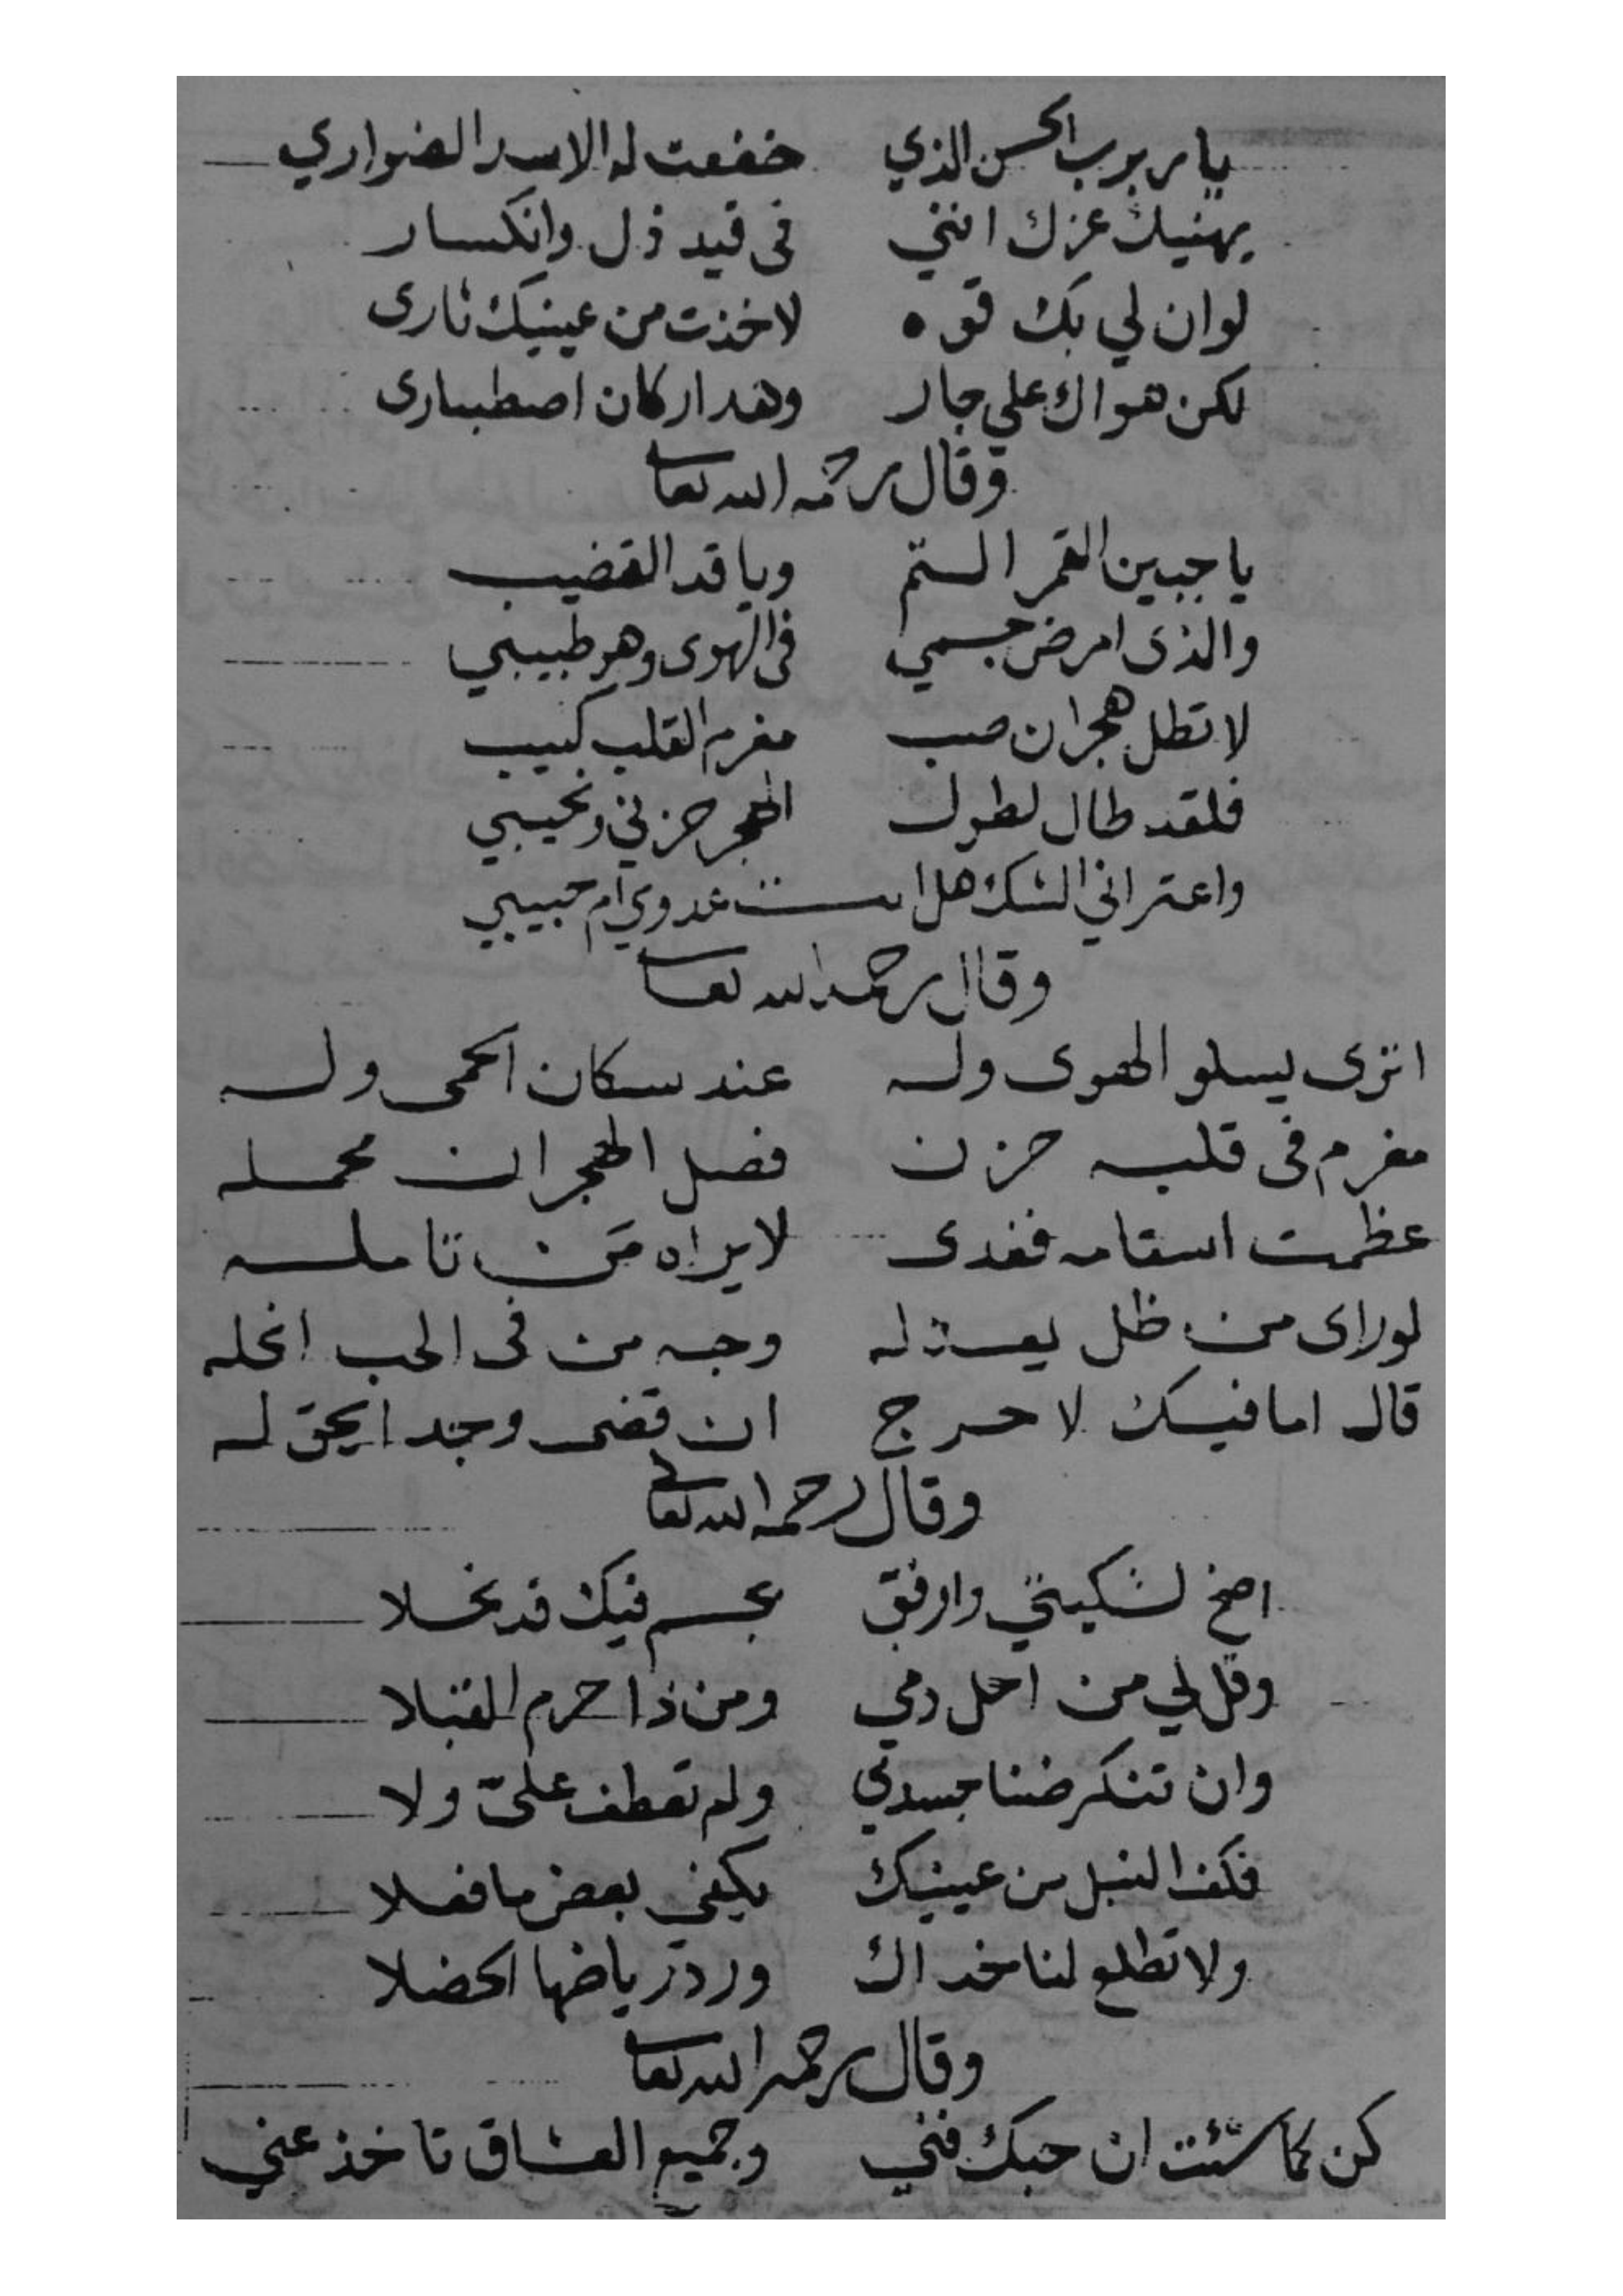 يا ربرب الحسن الذي خضعت له الاسد الضواري
يهنيك عزك انني فى قيد ذل وانكسار
لو ان لي بك قوه لاخذت من عينيك ثارى
لكن هواك علي جار وهد اركان اصطبارى
وقال رحمه الله تعا
يا جبين القمر التم ويا قد القضيب
والذى امرض جسمي فى الهوى وهو طبيبي
لا تطل هجران صب مغرم القلب كييب
فلقد طال لطول الهجر حزني ونحيبي
واعتراني الشك هل انت عدوي ام حبيبي
وقال رحمه الله تعا
اترى يسلو الهوى وله عند سكان الحمى وله
مغرم فى قلبه حزن فصل الهجران محمله
عظمت اسقامه فغدى لا يراه من تامله
لو راى من ظل يعذله وجه من فى الحب انحله
قال اما فيك لا حرج ان قضى وجدا يحق له
وقال رحمه الله تعالى
اصخ لشكيتي وارفق بجسم فيك قد نحلا
وقل لي من احل دمي ومن ذا حرم القبلا
وان تنكر ضنا جسدي ولم تعطف عليّ ولا
فكف النبل من عينيك يكفي بعض ما فعلا
ولا تطلع لنا خداك ورد رياضها الخضلا
وقال رحمه الله تعا
كن كما شئت ان حبك فني وجميع العشاق تاخذ عني